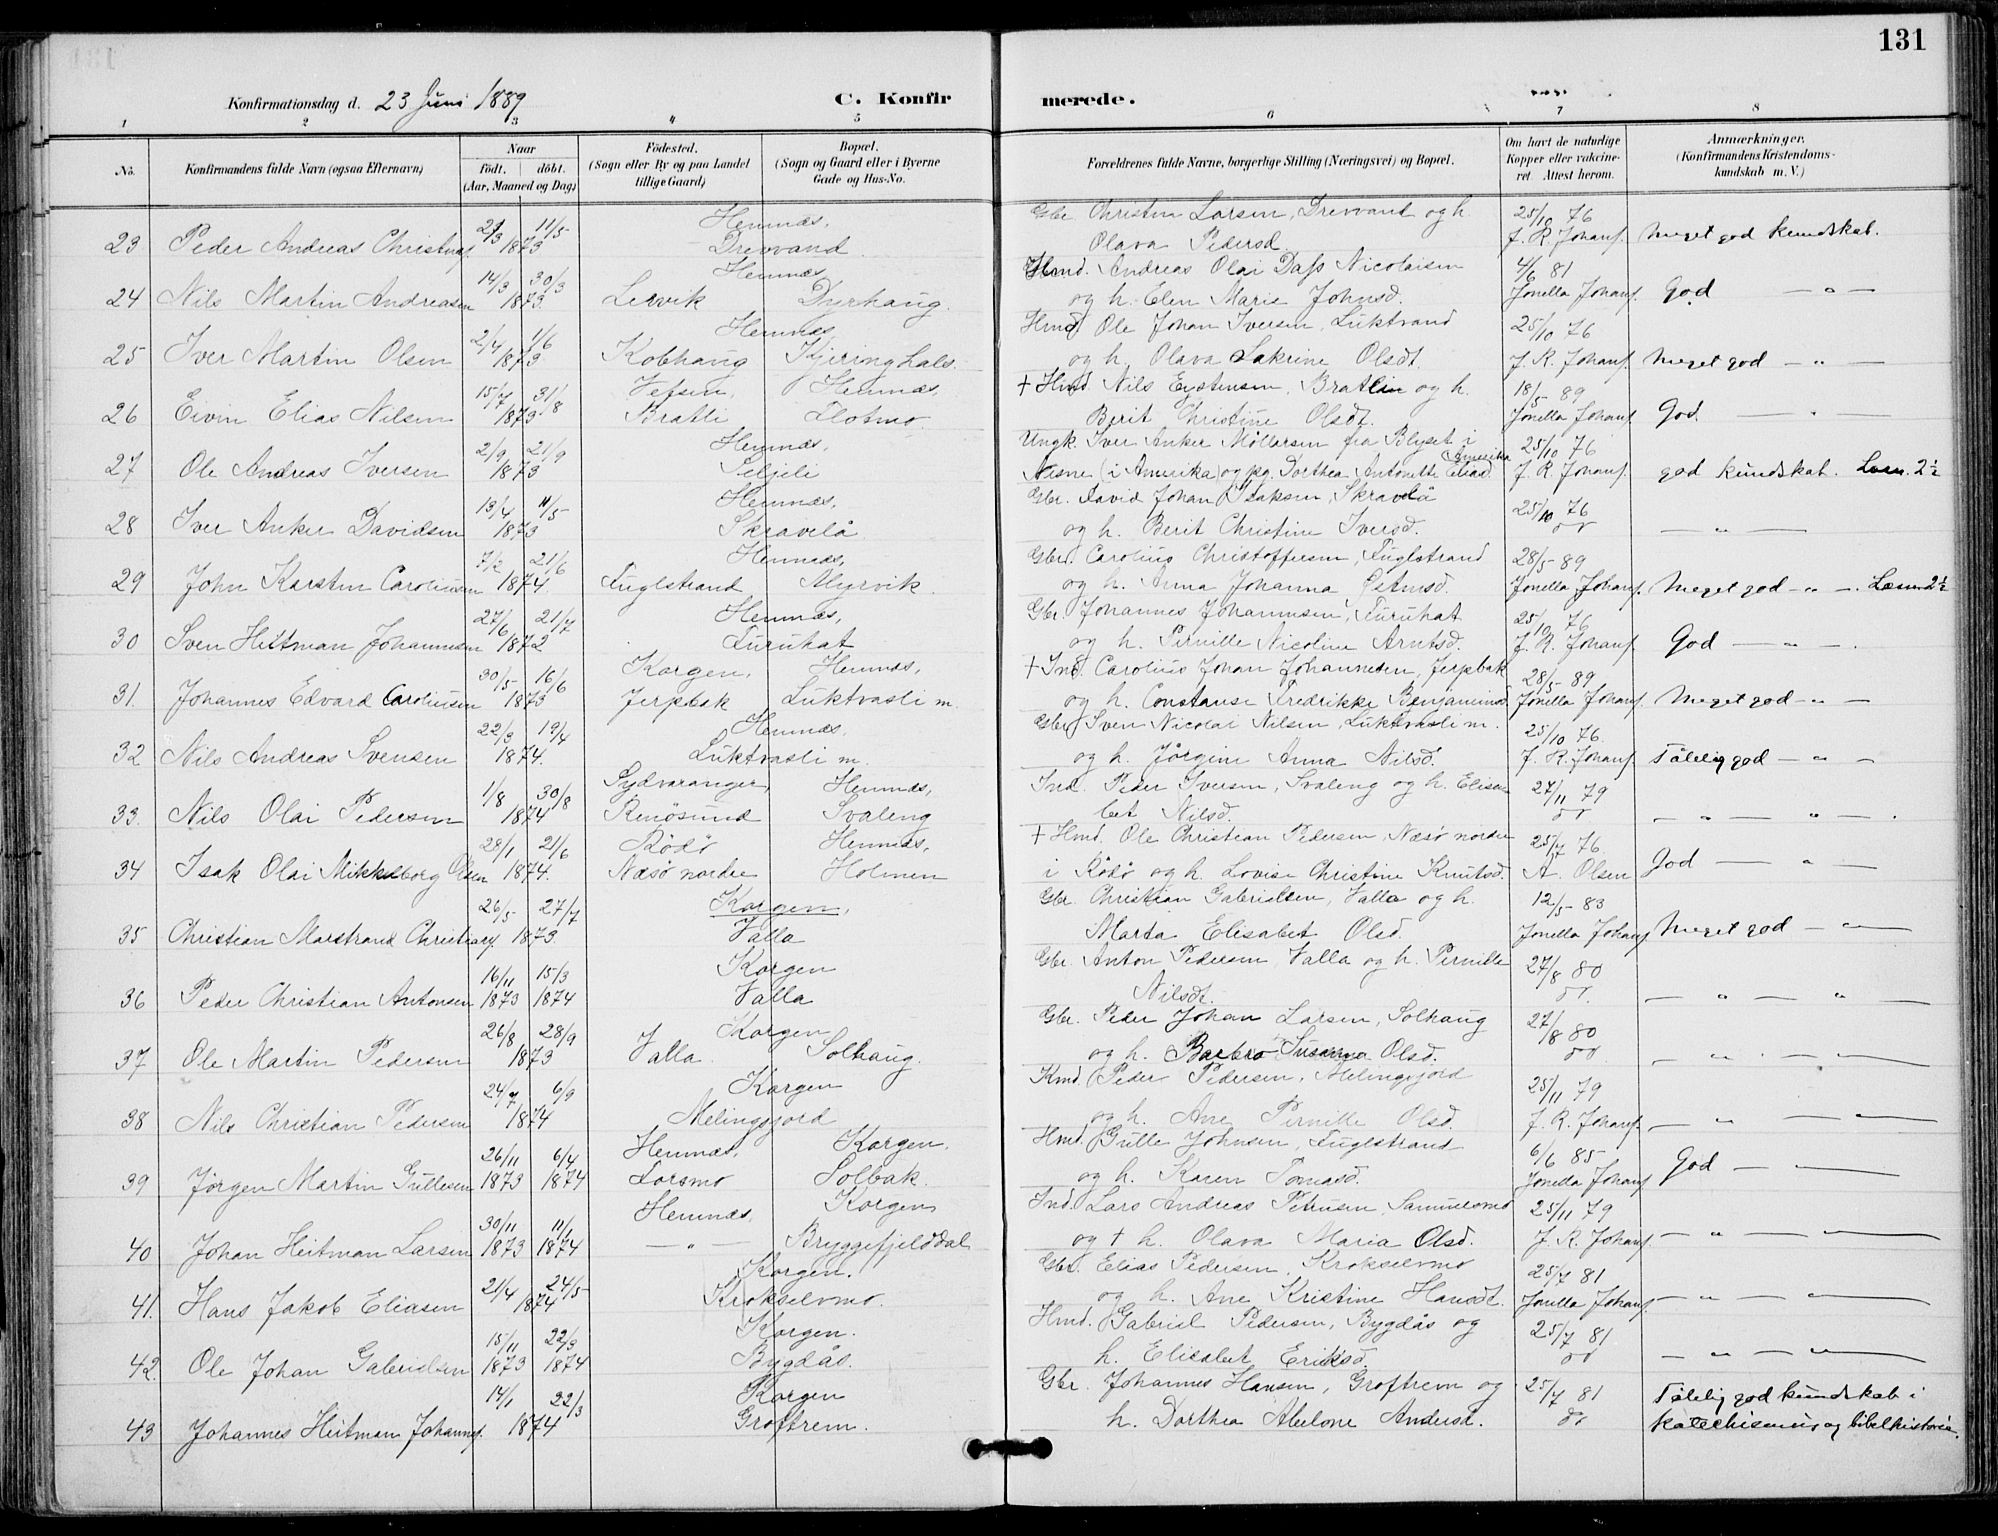 131
Konfirmationsdag d. 23 Juni 1889
C. Konfirmerede.
1 2 3 4 5 6 7 8
No. Konfirmandens fulde Navn (ogsaa Efternavn) Naar födt. döbt. (Aar, Maaned og Dag) Födested. (Sogn eller By og paa Landet tillige Gaard) Bopæl. (Sogn og Gaard eller i Byerne Gade og Hus-No. Forældrenes fulde Navne, borgerlige Stilling (Næringsvei) og Bopæl. Om havt de naturlige Kopper eller vakcineret. Attest herom. Anmærkninger. (Konfirmandens Kristendomskundskab m. V.)
23 Peder Andreas Christens. 2/3 11/5 1873 Hemnæs, Drevvand Gbr. Christen Larsen, Drevvand og h. Olava Pedersd. 25/10 76 J. R. Johans. Meget god kundskab.
24 Nils Martin Andreasen 14/3 30/3 1873 Hemnæs Lervik Dyrhaug. Hmd. Andreas Olai Dass Nicolaisen og h. Elen Marie Johnsd. 4/6 81 Jonella Johans. God — " —
25 Iver Martin Olsen 2/4 1/6 1873 Hemnæs Kobhaug Kjeringhals. Hmd. Ole Johan Iversen, Luktvand og h. Olava Lakrine Olsdt. 25/10 76 J. R. Johans. Meget god — " —
26 Eivin Elias Nilsen 15/7 31/8 1873 Vefsen, Bratli Hemnæs, Slotmo † Hmd. Nils Eystensen, Bratlien og h. Berit Christine Olsdt. 18/5 89 Jonella Johans. God. — " —
27 Ole Andreas Iversen 2/9 21/9 1873 Hemnæs, Seljeli Ungk. Iver Anker Möllersen fra Blyset i Næsne (i Amerika) og pg. Dorthea Antonette Eliasd. Amerika 25/10 76 J. R. Johans. god kundskab. Læsn. 2½
28 Iver Anker Davidsen 13/4 11/5 1873 Hemnæs, Skravelå Gbr. David Johan Isaksen, Skravelå og h. Berit Christine Iversd. 25/10 76 do — " —
29 John Karsten Caroliusen 7/2 21/6 1874. Hemnæs, Fuglstrand Myrvik. Gbr. Carolius Christoffersen, Fuglstrand og h. Anna Johanna Östensd. 28/5 89 Jonella Johans. Meget god — " —. Læsn 2½
30 Sven Hittman Johannesen 27/6 21/7 1872 Hemnæs, Furuhat Gbr. Johannes Johannesen, Furuhat og h. Pernille Nicoline Arntsd. 25/10 76 J. R. Johans. God — " —.
31. Johannes Edvard Caroliusen 30/5 16/6 1873 Korgen, Jerpbak Hemnæs, Luktvasli m. † Ind. Carolius Johan Johannesen, Jerpbak og h. Constanse Fredrikke Benjaminsd. 28/5 89 Jonella Johans. Meget god — " —
32 Nils Andreas Svensen 22/3 19/4 1874. Hemnæs. Luktvasli m. Gbr. Sven Nicolai Nilsen, Luktvasli m. og h. Jörgine Anna Nilsd. 25/10 76. J. R. Johans. Tålelig god — " —
33. Nils Olai Pedersen 1/8 30/8 1874 Sydvaranger, Renösund Hemnæs, Svaleng Ind. Peder Iversen, Svaleng og h. Elisabet Nilsd. 27/11 79 do — " — " —.
34 Isak Olai Mikkelborg Olsen 28/1 21/6 1874. Rödö Næsö nordre Hemnæs, Holmen † Hmd. Ole Christian Pedersen, Næsö nordre i Rödö og h. Lovise Christine Knutsd. 25/7 76. A. Olsen God — " —
35 Christian Marstrand Christians. 26/5 27/7 1873. Korgen, Valla Gbr. Christian Gabrielsen, Valla og h. Marta Elisabet Olsd. 12/5 83 Jonella Johans. Meget god — " —
36 Peder Christian Antonsen 16/11 1873 15/3 1874 Korgen Valla Gbr. Anton Pedersen, Valla og h. Pernille Nilsdt. 27/8 80 do. — " — " —
37 Ole Martin Pedersen 26/8 28/9 1873 Korgen Valla. Solhaug. Gbr. Peder Johan Larsen, Solhaug og h. Barbro Susanna Olsd. 27/8 80 do — " —
38 Nils Christian Pedersen 24/7 6/9 1874 Korgen Melingsjord Kmd. Peder Pedersen, Melingsjord og h. Ane Pernille Olsd. 25/11 79 J. R. Johans. — " —
39 Jörgen Martin Gullesen 26/11 1873 6/4 1874 Hemnæs, Forsmo Korgen. Solbak. Hmd. Gulle Johnsen, Fuglstrand og h. Karen Tomasd. 6/6 85 Jonella Johans. God — " —
40 Johan Heitman Larsen 30/11 1873 1874 Hemnæs. — " — Korgen Bryggefjelddal Ind. Lars Andreas Petersen, Sammelsmo og † h. Olava Maria Olsd. 25/11 79 J. R. Johans. — " —
41. Hans Jakob Eliasen 21/4 24/5 1874 Korgen. Krokselvmo. Gbr. Elias Pedersen Krokselvmo og h. Ane Kristine Hansdt. 25/7 81 Jonella Johans. — " —
42. Ole Johan Gabrielsen 15/11 1873 22/3 1874 Korgen. Bygdås. Hmd. Gabriel Pedersen, Bygdås og h. Elisabet Eriksd. 25/7 81 do — " —
43 Johannes Heitman Johannes. 14/1 22/3 1874 Korgen Groftrem. Gbr. Johannes Hansen, Groftrem og h. Dorthea Abelone Andersd. 25/7 81 do Tålelig god kundskab i katechismus og bibelhistorie.